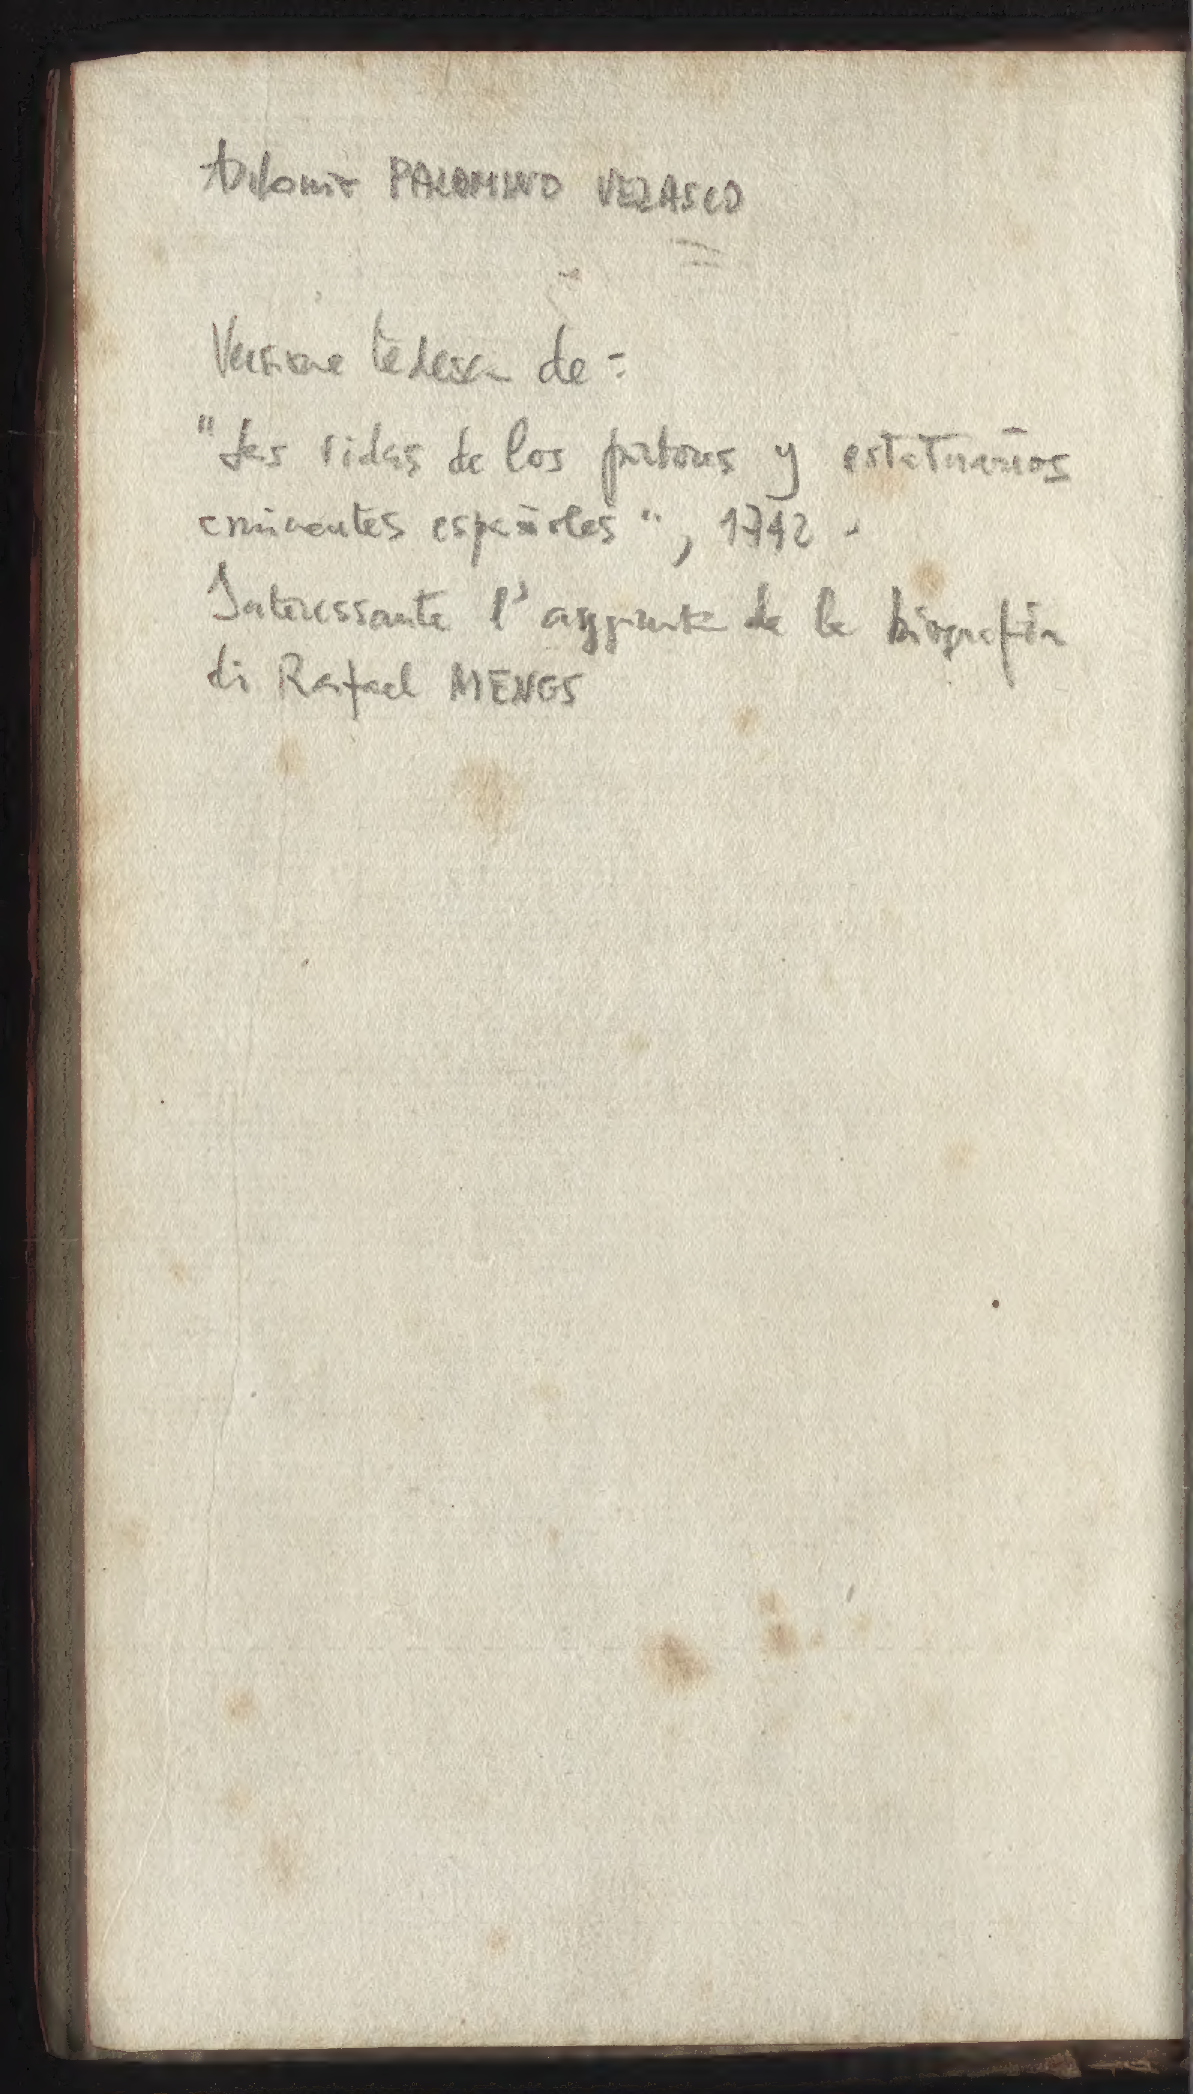 Antonio PALOMINO VELASCO
Versione tedesca de:
"Las vidas de los pintores y estatuarios
eminentes españoles", 1742.
Interessante l'aggiunta de la biografia
di Rafael MENGS